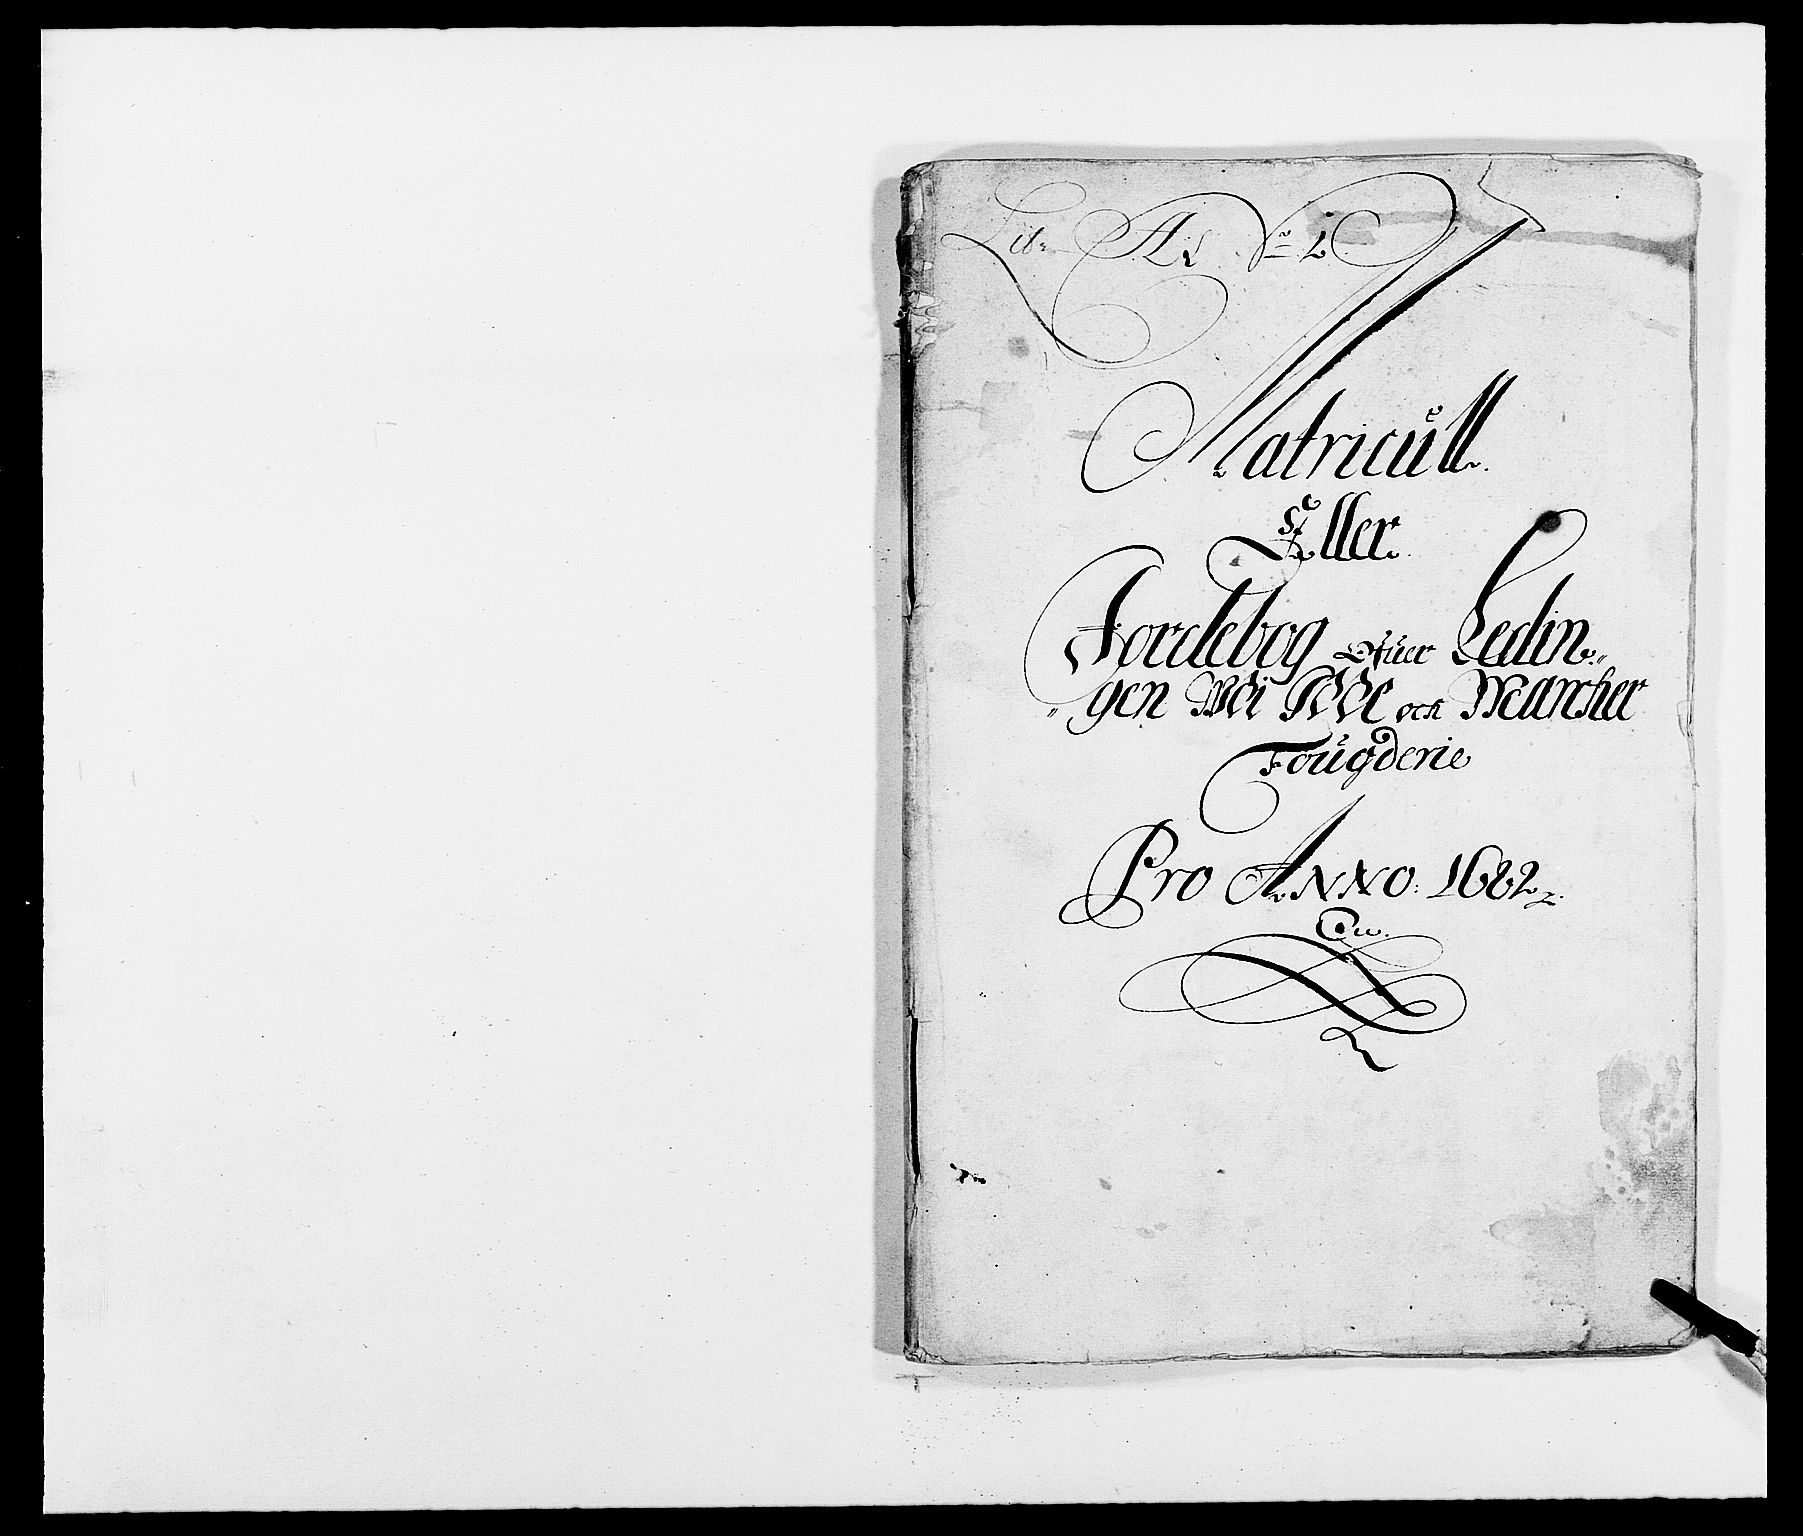 Litr A No 1
Matricull
Eller
Jordebog Ofuer Ledin¬
gen Udi och Marcher
Fougderie
Pro Anno: 1682